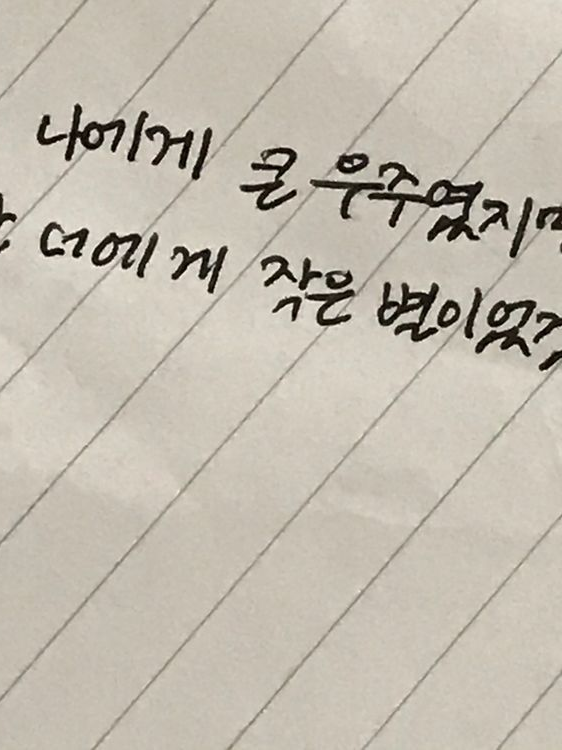 나에게 큰 우주였지
너에게 작은 별이었